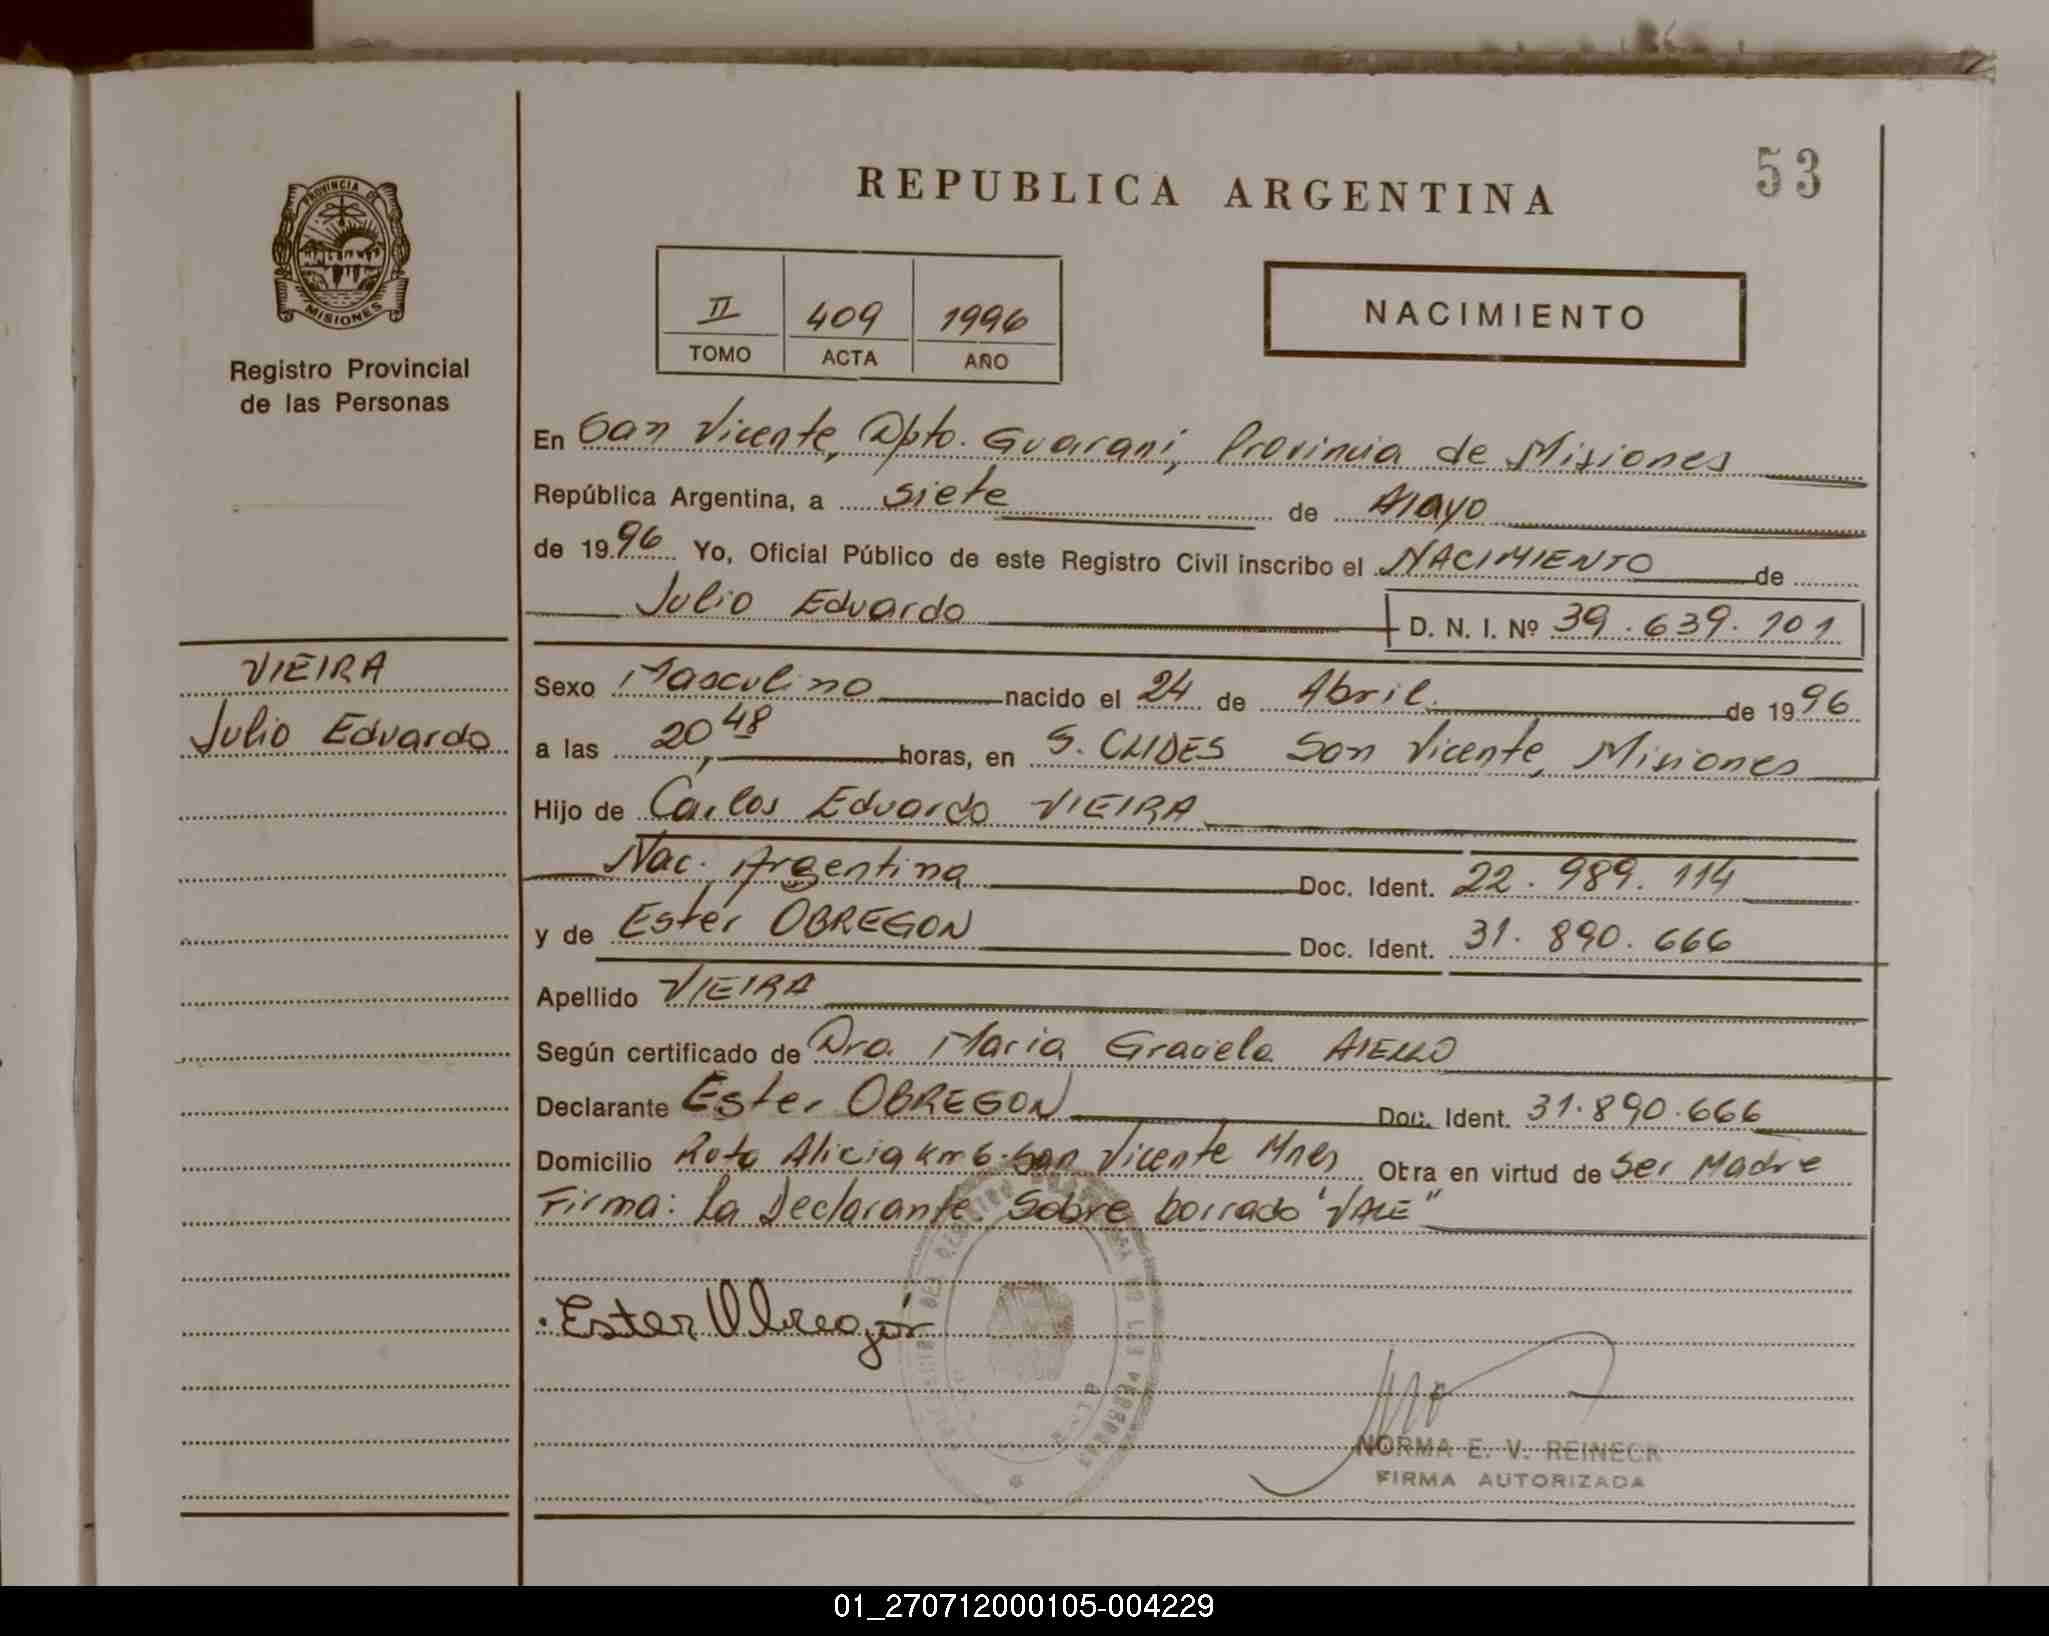 53
REPUBLICA ARGENTINA
PROVINCIA DE
MISIONES
Registro Provincial
de las Personas
II 409 1996
TOMO ACTA AÑO
NACIMIENTO
En San Vicente, Dpto. Guaraní, Provincia de Misiones
República Argentina, a siete de Mayo
de 1996 Yo, Oficial Público de este Registro Civil inscribo el NACIMIENTO de
Julio Eduardo D. N. I. Nº 39.639.101
VIEIRA
Julio Eduardo
Sexo Masculino nacido el 24 de Abril de 1996
a las 20,48 horas, en S. CLIDES San Vicente, Misiones
Hijo de Carlos Eduardo VIEIRA
Nac. Argentina Doc. Ident. 22.989.114
y de Ester OBREGON Doc. Ident. 31.890.666
Apellido VIEIRA
Según certificado de Dra. Maria Graciela AIELLO
Declarante Ester OBREGON Doc. Ident. 31.890.666
Domicilio Ruta Alicia km 6. San Vicente Mnes Obra en virtud de ser Madre
Firma: La Declarante. Sobre borrado "VALE"
Ester Obregón
NORMA E. V. REINECK
FIRMA AUTORIZADA
01_270712000105-004229